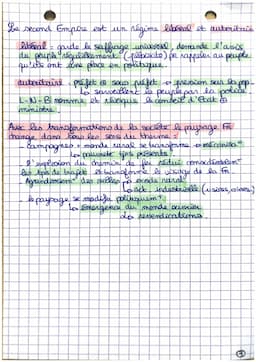 Le second Empire est un régime libéral et autoritaire
libéral : garde le suffrage universel, demande l'avis
du peuple régulièrement (plébiscite) se rappeler au peuple
qu'ils ont une place en politique.
autoritaire : préfet et sous préfet → pression sur la pop.
↳ surveillent le peuple par la police
L-N-B nomme et révoque le conseil d'État et
ministre.
Avec les transformations de la société le paysage Fr
change dans tous les sens du thermes :
- Campagnes : monde rural se transforme → mécanisa°
↳ pauvreté très présente.
- L'explosion du chemin de fer réduit considérablemt
les tps de trajet et transforme le visage de la Fr.
- Agrandissement des villes ↳ monde rural
↳ act industrielle (usines, mines)
- le paysage se modifie politiquemt :
↳ émergence du monde ouvrier
↳ revendications.